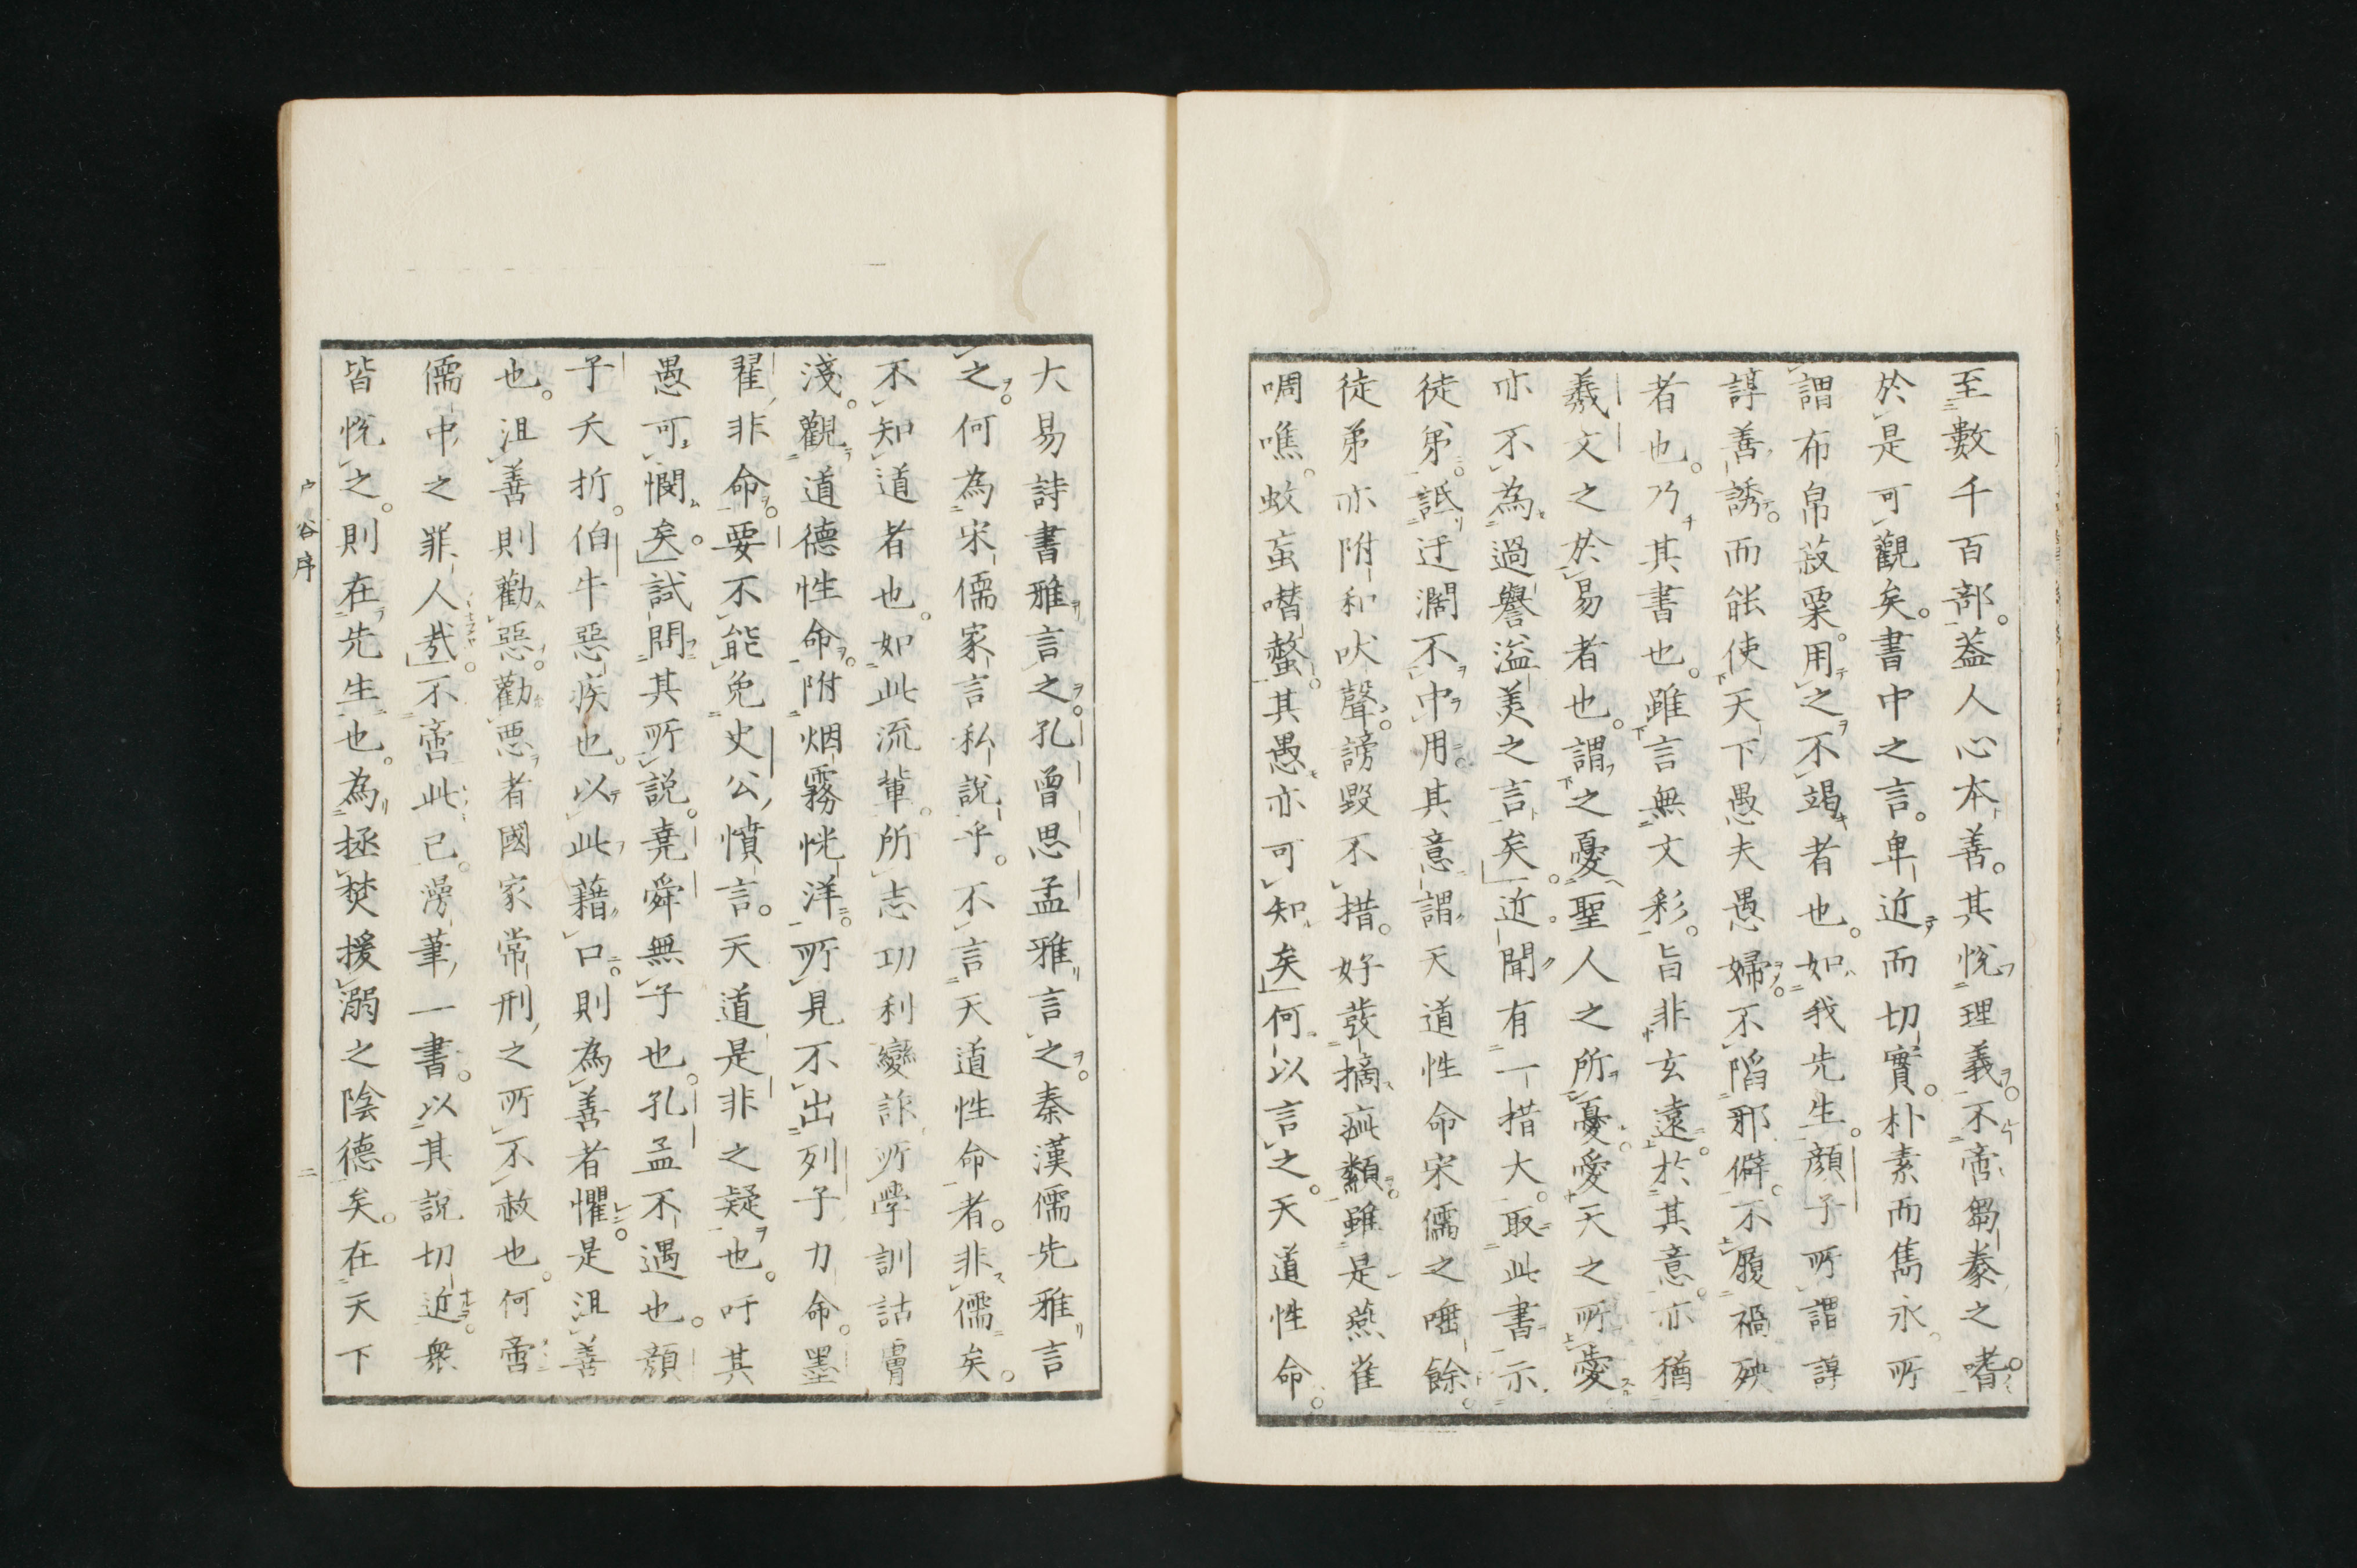 至數千百部。蓋人心本善。其悅理義。不啻芻豢之嗜。
於是可觀矣。書中之言。卑近而切實。朴素而雋永。所
謂布帛菽粟。用之不竭者也。如我先生。顏子所謂諄
諄善誘。而能使天下愚夫愚婦。不陷邪僻。不履禍殃
者也。乃其書也。雖言無文彩。旨非玄遠。於其意。亦猶
羲文之於易者也。謂之憂聖人之所憂。愛天之所愛。
亦不為過譽溢美之言矣。近。聞有一措大。取此書示
徒弟。詆迂濶不中用。其意謂天道性命宋儒之唾餘。
徒弟亦附和吠聲。謗毀不措。好發摘疵纇。雖是燕雀
啁噍。蚊虻噆螫。其愚亦可知矣。何以言之。天道性命。
大易詩書雅言之。孔曾思孟雅言之。秦漢儒先雅言
之。何為宋儒家言私說乎。不言天道性命者。非儒矣。
不知道者也。如此流輩。所志功利變詐。所學訓詁膚
淺。觀道德性命。附烟霧恍洋。所見不出列子力命。墨
翟非命。要不能免史公憤言。天道是非之疑也。吁其
愚可憫矣。試問其所說。堯舜無子也。孔孟不遇也。顏
子夭折。伯牛惡疾也。以此藉口。則為善者懼。是沮善
也。沮善則勸惡。勸惡者國家常刑之所不赦也。何啻
儒中之罪人哉。不啻此已。漫筆一書。以其說切近。衆
皆悅之。則在先生也。為拯焚援溺之陰德矣。在天下
戶谷序
二